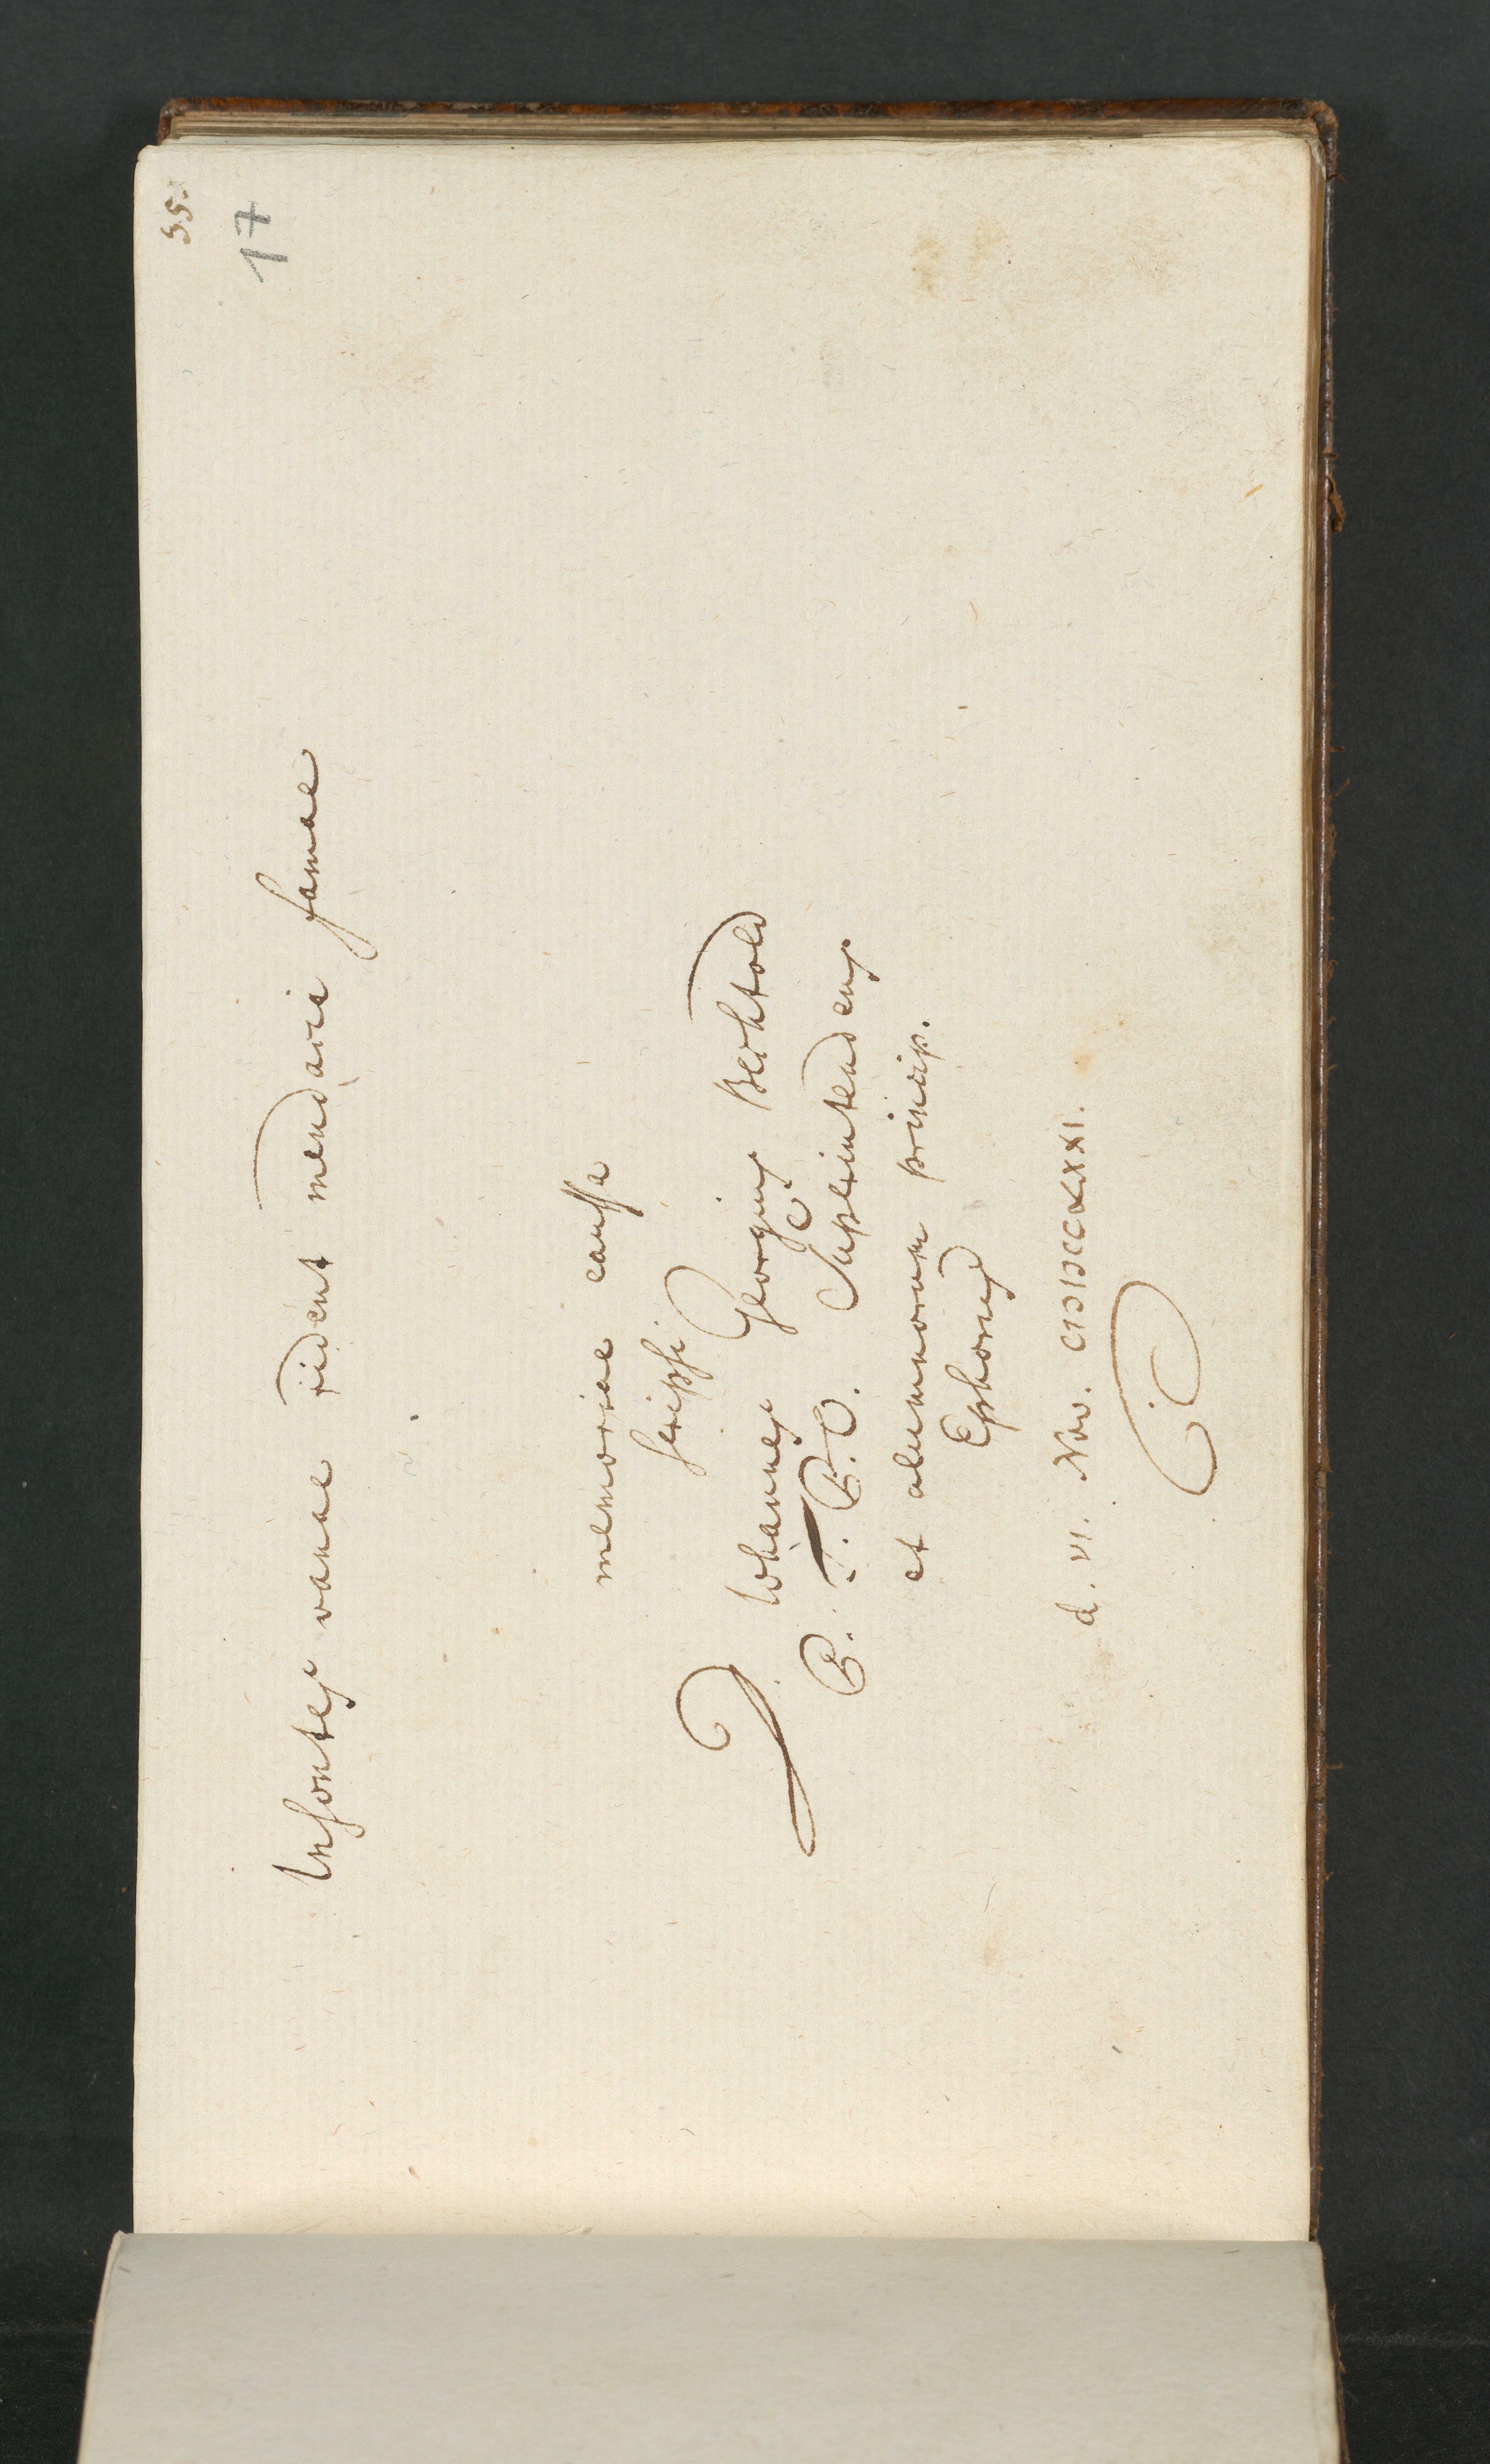 35.
17
Insontes vanae rident mendacia famae
memoriae caussa
scripsi
Iohannes Georgius Berhtold
B. T. B. O. Supeintendens
et alumnorum princip.
Ephorus
d. VI. Nov. CIƆIƆCCLXXI.